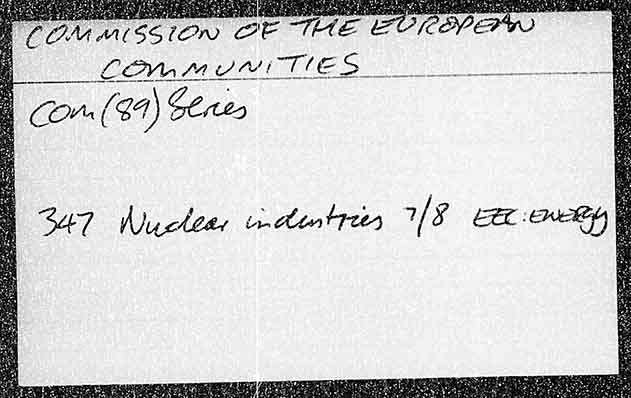 COMMISSION OF THE EUROPEAN
COMMUNITIES
COM(89) Series
347 Nuclear industries 7/8 EEC:ENERGY